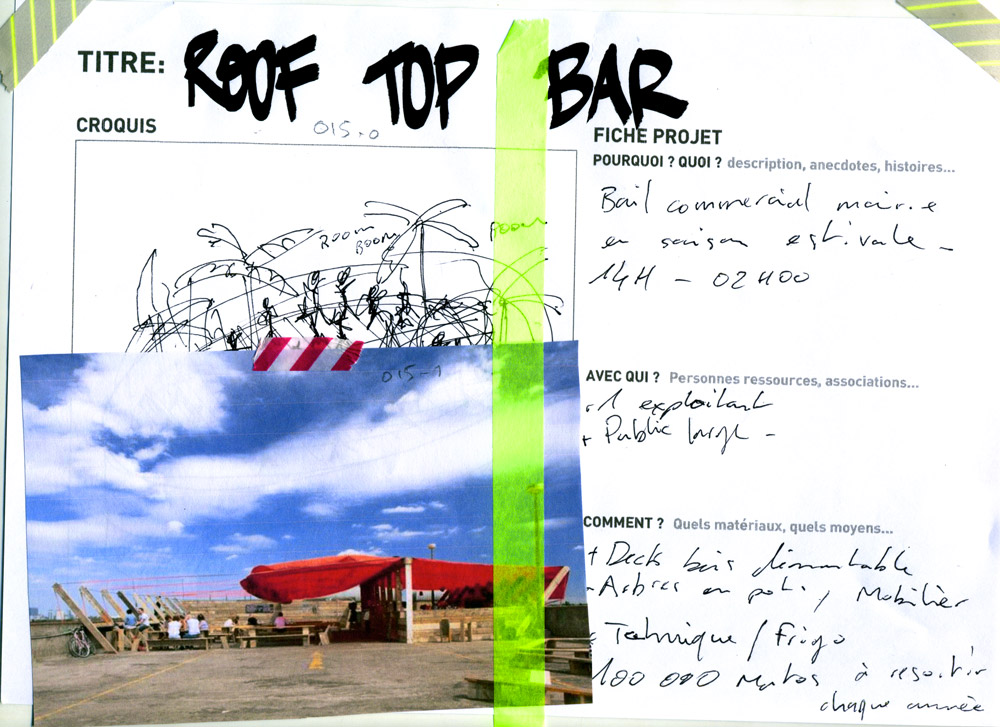 TITRE: ROOF TOP BAR
CROQUIS
015-0
ROOM
BOOM
015-1
FICHE PROJET
POURQUOI ? QUOI ? description, anecdotes, histoires...
Bail commercial mairie
en saison estivale -
14H - 02H00
AVEC QUI ? Personnes ressources, associations...
1 exploitant
+ Public large -
COMMENT ? Quels matériaux, quels moyens...
+ Deck bois démontable
- Arbres en pots, Mobilier
Technique / Frigo
100 000 Matos à resortir
chaque année